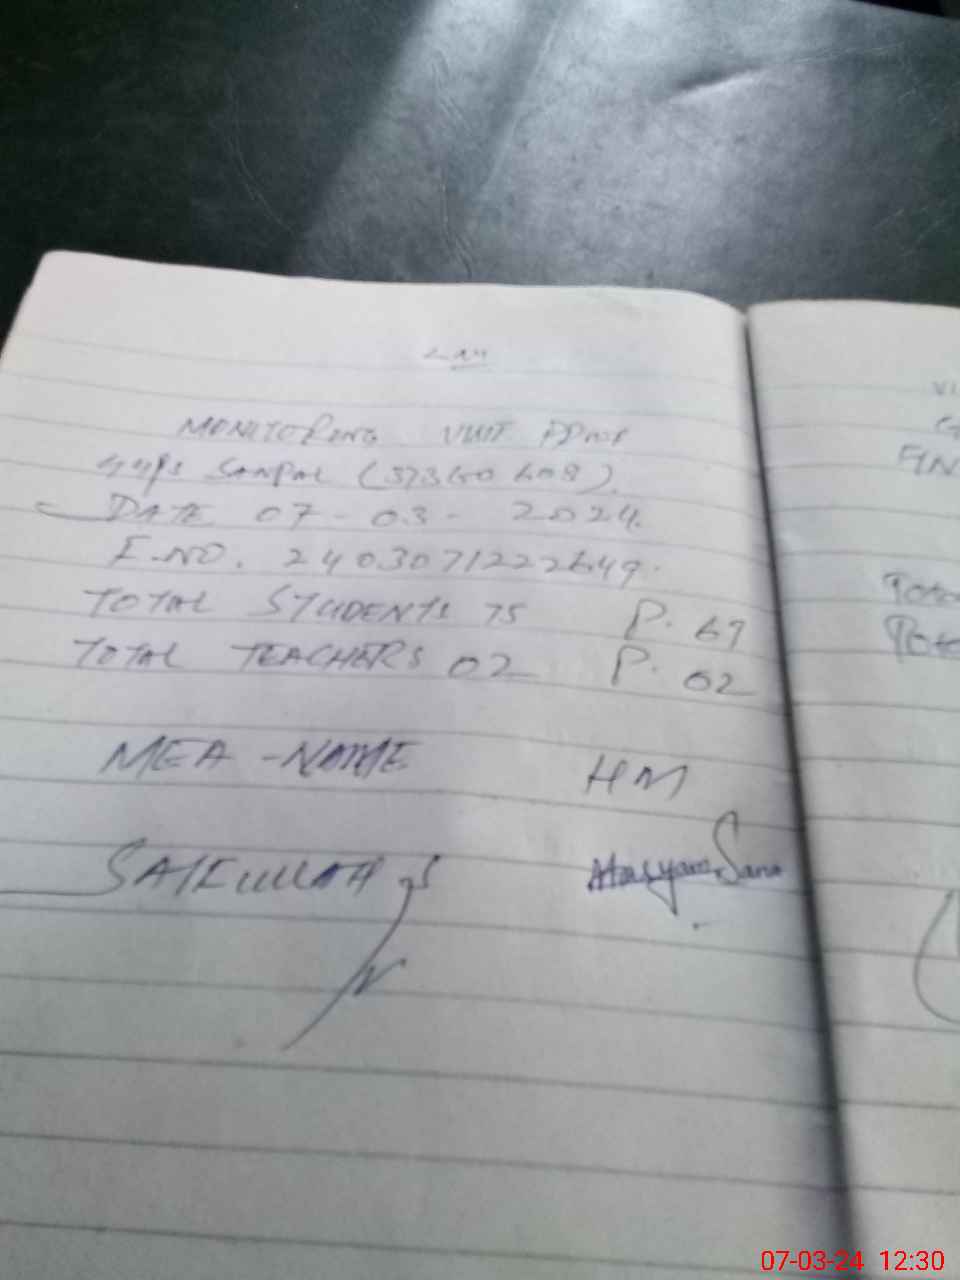 MONITORING VISIT
SANPAL (37360608)
DATE 07-03-2024
E.NO. 2403071222649
TOTAL STUDENTS 75 P. 67
TOTAL TEACHERS 02 P. 02
MEA-NAME HM
SAIFULLAH Maryam Sana
FIN
07-03-24 12:30